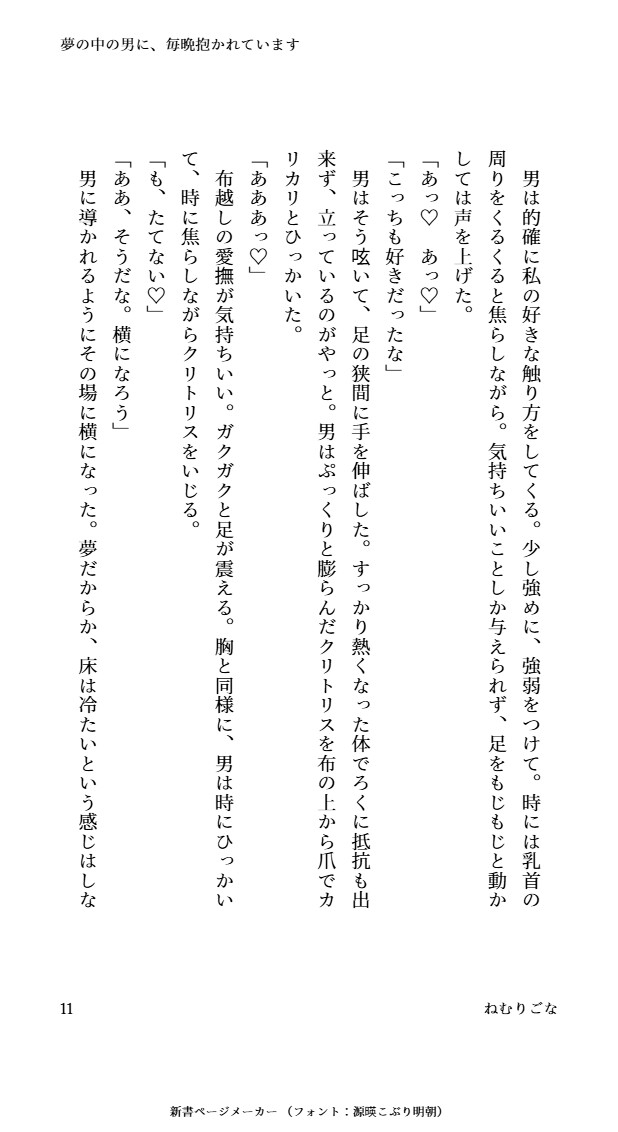 夢の中の男に、毎晩抱かれています
　男は的確に私の好きな触り方をしてくる。少し強めに、強弱をつけて。時には乳首の
周りをくるくると焦らしながら。気持ちいいことしか与えられず、足をもじもじと動か
しては声を上げた。
「あっ♡　あっ♡」
「こっちも好きだったな」
　男はそう呟いて、足の狭間に手を伸ばした。すっかり熱くなった体でろくに抵抗も出
来ず、立っているのがやっと。男はぷっくりと膨らんだクリトリスを布の上から爪でカ
リカリとひっかいた。
「あああっ♡」
　布越しの愛撫が気持ちいい。ガクガクと足が震える。胸と同様に、男は時にひっかい
て、時に焦らしながらクリトリスをいじる。
「も、たてない♡」
「ああ、そうだな。横になろう」
　男に導かれるようにその場に横になった。夢だからか、床は冷たいという感じはしな
11
ねむりごな
新書ページメーカー（フォント：源暎こぶり明朝）